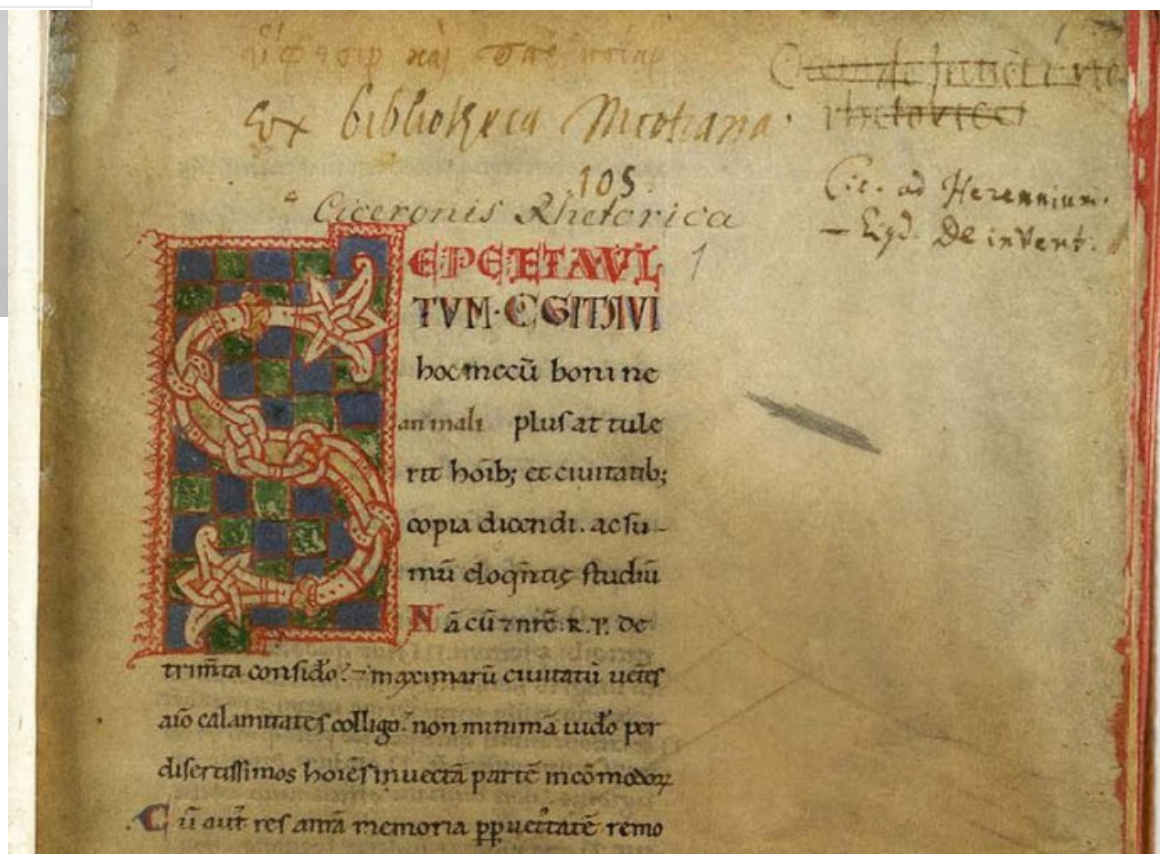 Ex bibliotheca Nicotiana.
rhetorica
105.
Ciceronis Rhetorica
Cic. ad Herennium.
– Eiusd. De invent.
1
SEPE ET MVL
TVM·COGITAVI
hoc mecū boni ne
an mali plus attule
rit hoīb; et ciuitatib;
copia dicendi. ac su-
mū eloqntię studiū
Nā cū nrē R.P. de
trimta consido. & maximarū ciuitatū uetes
aīo calamitates colligo. non minimā uido per
disertissimos hoīes inuectā partē incōmodoꝝ
Cū aut res antꝗ̄ memoria ꝓpt uetustatē remo